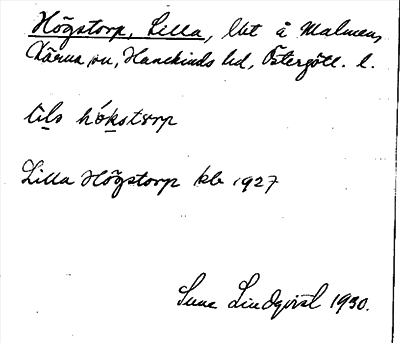 Högstorp, Lilla, lht å Malmen,
Kärna sn, Hanekinds hd, Östergötl. l.
lịla hǿkstɔrp
Lilla Högstorp kb 1927
Sune Lindqvist 1930.